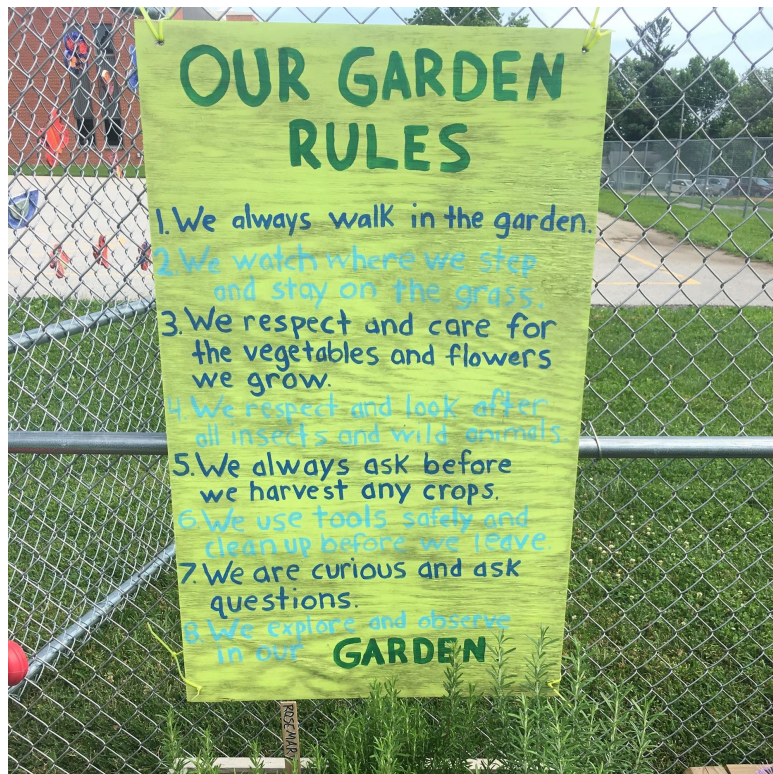 OUR GARDEN
RULES
1. We always walk in the garden.
2. We watch where we step
and stay on the grass.
3. We respect and care for
the vegetables and flowers
we grow.
4. We respect and look after
all insects and wild animals
5. We always ask before
we harvest any crops.
6. We use tools safely and
clean up before we leave
7. We are curious and ask
questions.
8. We explore and observe
in our GARDEN
ROSEMAR